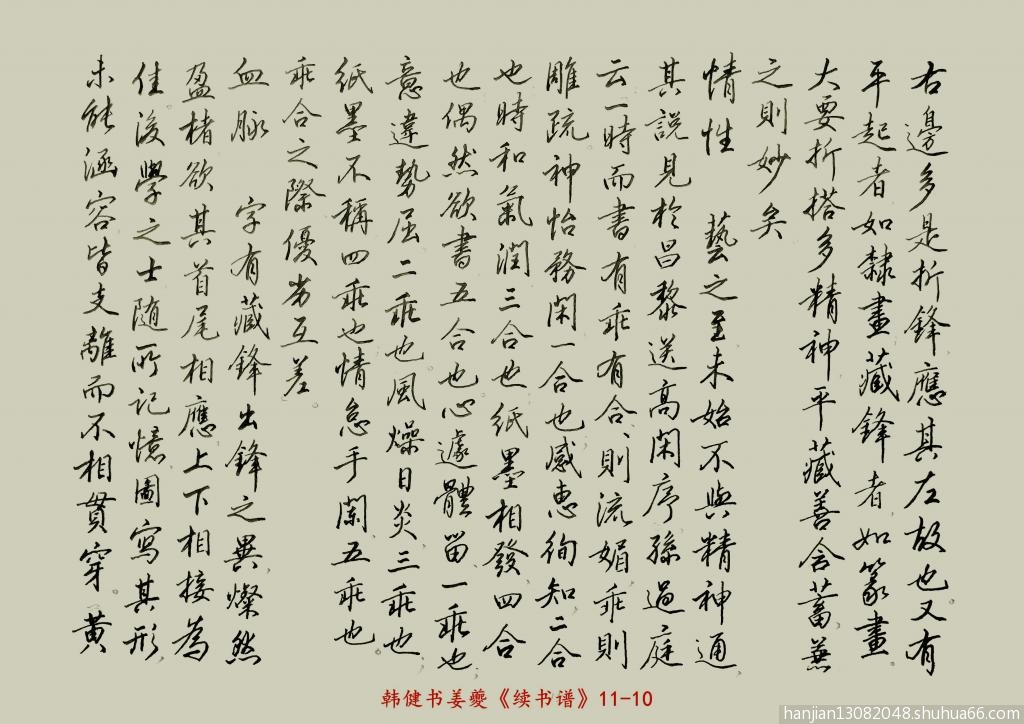 右邊多是折鋒應其左故也又有
平起者如隸畫藏鋒者如篆畫
大要折搭多精神平藏善含蓄兼
之則妙矣
情性　藝之至未始不與精神通
其說見於昌黎送高閑序孫過庭
云一時而書有乖有合、則流媚乖則
雕疏神怡務閑一合也感惠徇知二合
也時和氣潤三合也紙墨相發四合
也偶然欲書五合也心遽體留一乖也
意違勢屈二乖也風燥日炎三乖也
紙墨不稱四乖也情怠手闌五乖也
乖合之際優劣互差
血脉　字有藏鋒出鋒之異燦然
盈楮欲其首尾相應上下相接為
佳後學之士随所記憶圖寫其形
未能涵容皆支離而不相貫穿黄
韩健书姜夔《续书谱》11-10
hanjian13082048.shuhua66.com